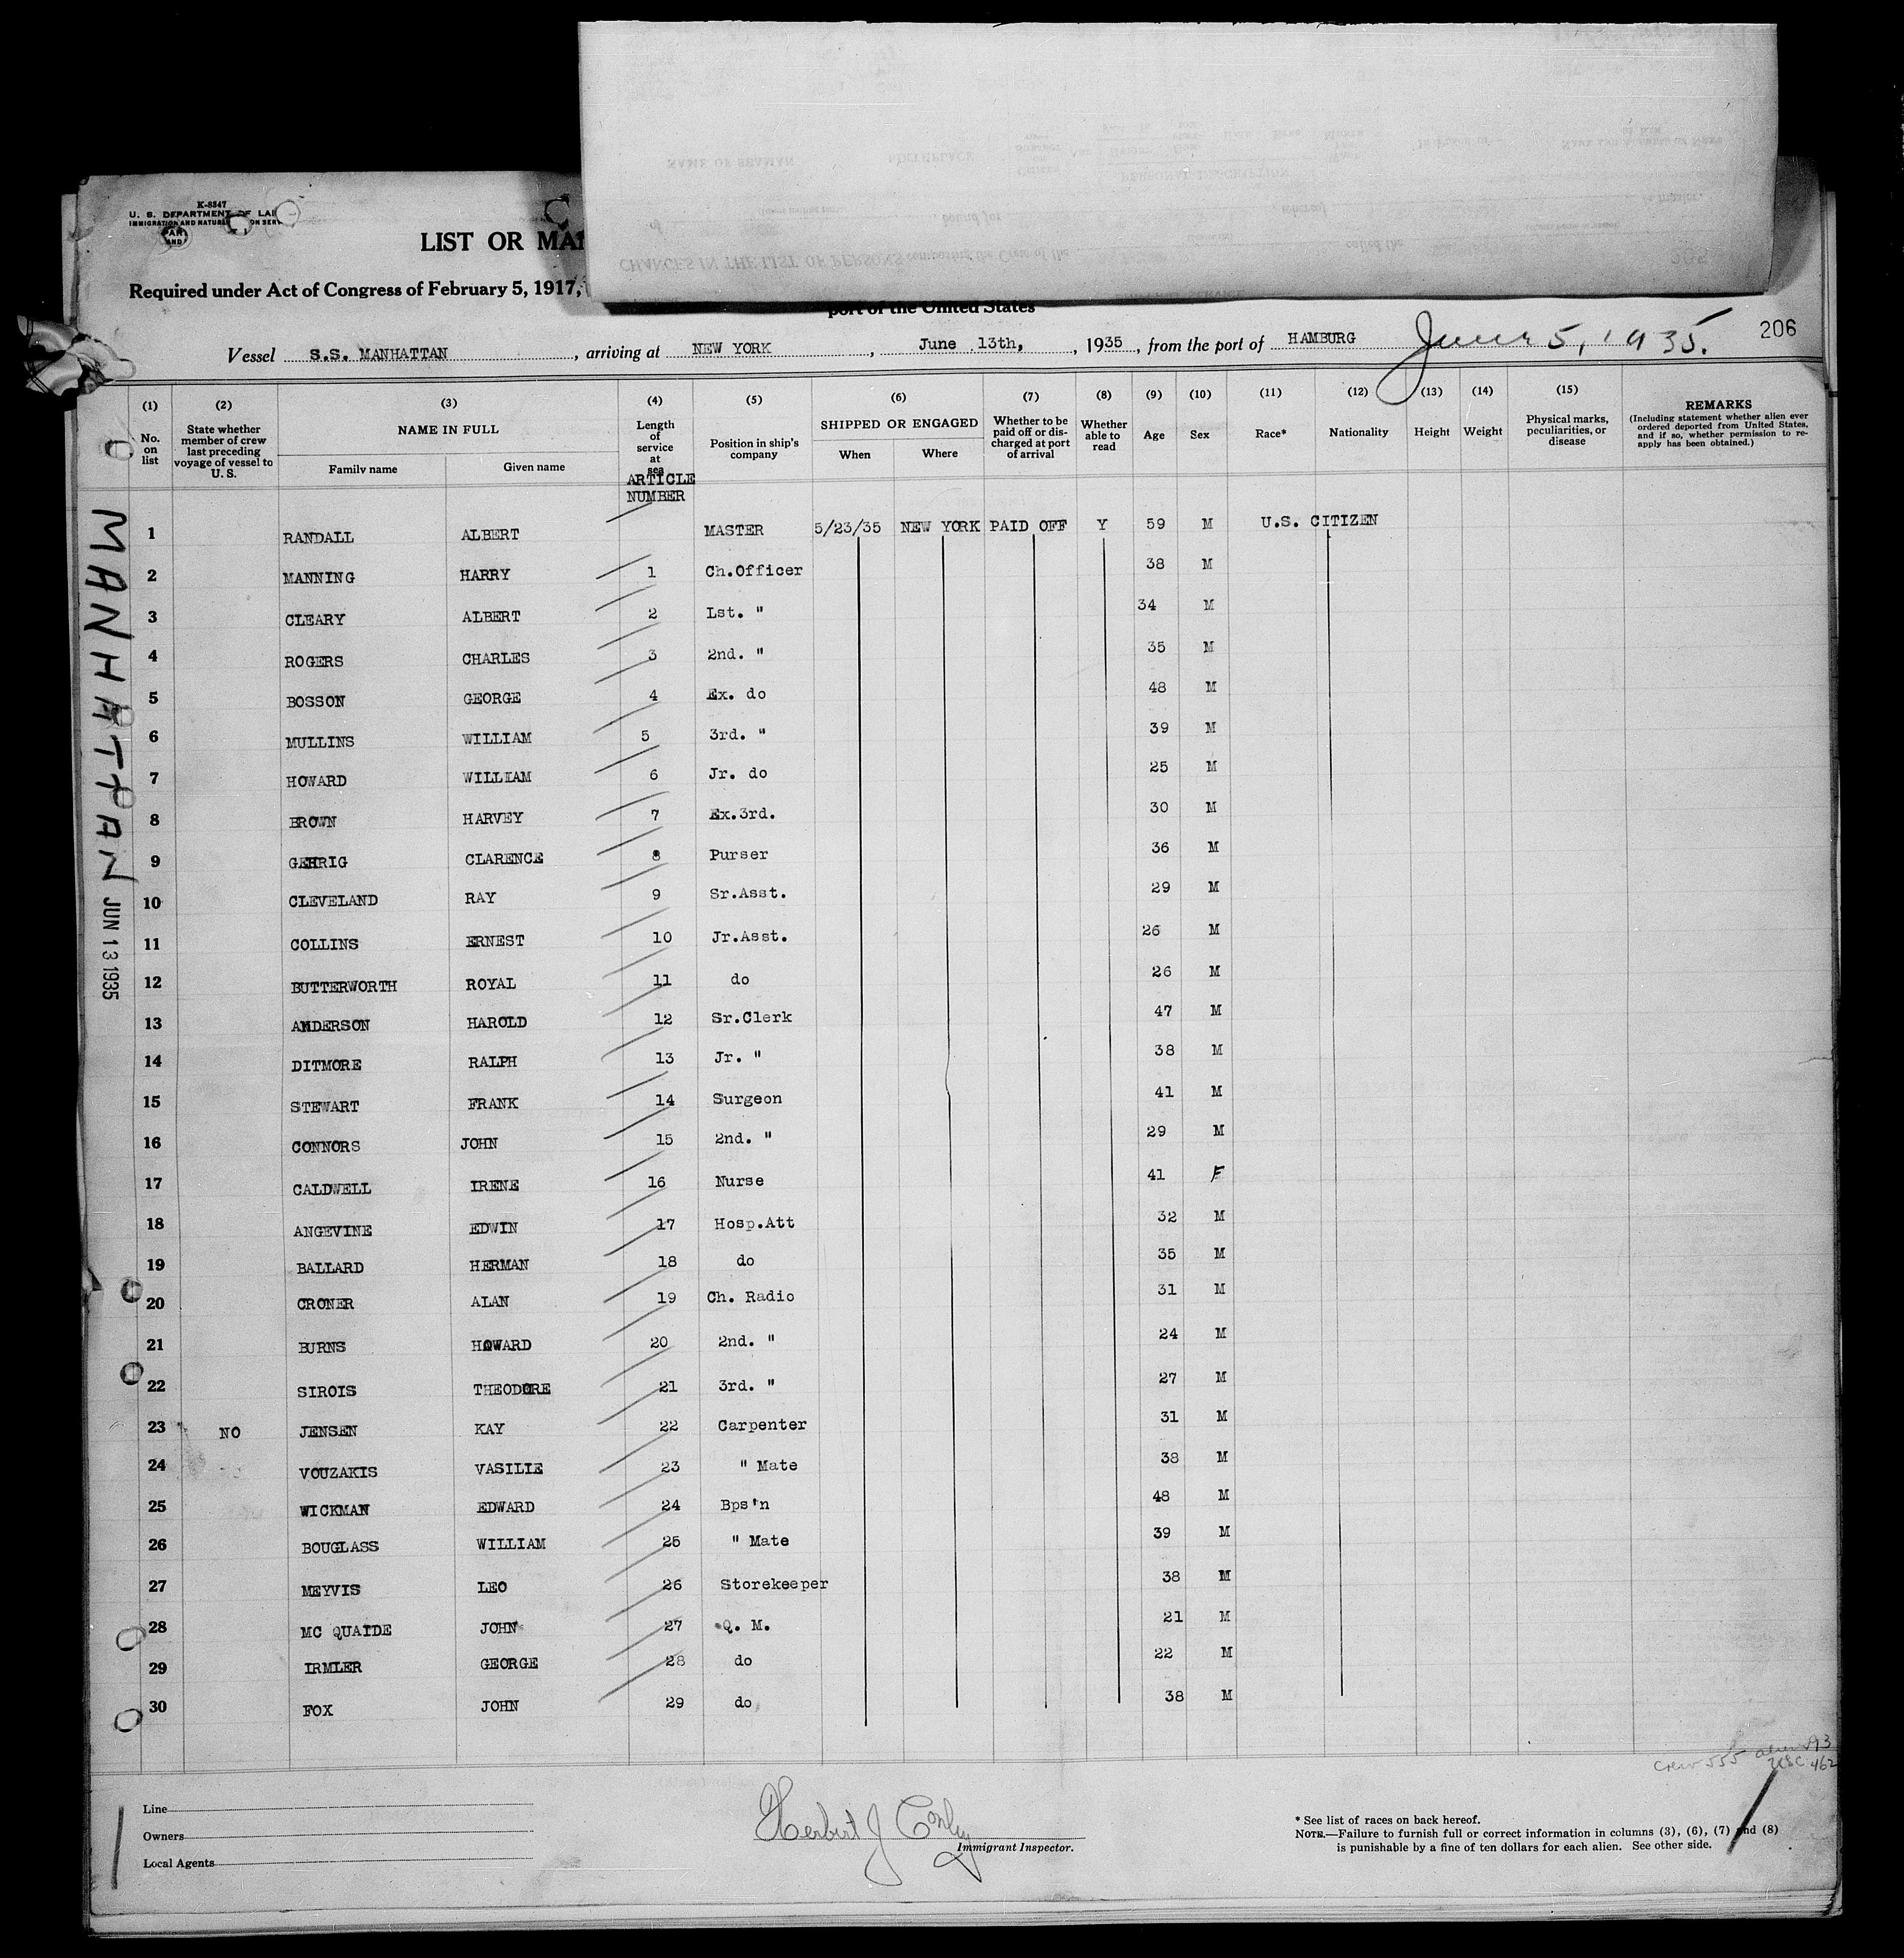 K-8347
U. S. DEPARTMENT OF LAB
IMMIGRATION AND NATURALIZATION SERV
LIST OR MAN
Required under Act of Congress of February 5, 1917,
port of the United States
CHANGES IN THE LIST OF PERSONS composing the Crew of the
206
Vessel S.S. MANHATTAN, arriving at NEW YORK, June 13th, 1935, from the port of HAMBURG June 5, 1935.
(1) No. on list
(2) State whether member of crew last preceding voyage of vessel to U. S.
(3) NAME IN FULL Family name Given name
(4) Length of service at sea ARTICLE NUMBER
(5) Position in ship's company
(6) SHIPPED OR ENGAGED When Where
(7) Whether to be paid off or discharged at port of arrival
(8) Whether able to read
(9) Age
(10) Sex
(11) Race*
(12) Nationality
(13) Height
(14) Weight
(15) Physical marks, peculiarities, or disease
REMARKS (Including statement whether alien ever ordered deported from United States, and if so, whether permission to reapply has been obtained.)
1 RANDALL ALBERT MASTER 5/23/35 NEW YORK PAID OFF Y 59 M U.S. CITIZEN
2 MANNING HARRY 1 Ch.Officer 38 M
3 CLEARY ALBERT 2 Lst. " 34 M
4 ROGERS CHARLES 3 2nd. " 35 M
5 BOSSON GEORGE 4 Ex. do 48 M
6 MULLINS WILLIAM 5 3rd. " 39 M
7 HOWARD WILLIAM 6 Jr. do 25 M
8 BROWN HARVEY 7 Ex.3rd. 30 M
9 GEHRIG CLARENCE 8 Purser 36 M
10 CLEVELAND RAY 9 Sr.Asst. 29 M
11 COLLINS ERNEST 10 Jr.Asst. 26 M
12 BUTTERWORTH ROYAL 11 do 26 M
13 ANDERSON HAROLD 12 Sr.Clerk 47 M
14 DITMORE RALPH 13 Jr. " 38 M
15 STEWART FRANK 14 Surgeon 41 M
16 CONNORS JOHN 15 2nd. " 29 M
17 CALDWELL IRENE 16 Nurse 41 F
18 ANGEVINE EDWIN 17 Hosp.Att 32 M
19 BALLARD HERMAN 18 do 35 M
20 CRONER ALAN 19 Ch. Radio 31 M
21 BURNS HOWARD 20 2nd. " 24 M
22 SIROIS THEODORE 21 3rd. " 27 M
23 NO JENSEN KAY 22 Carpenter 31 M
24 VOUZAKIS VASILIE 23 " Mate 38 M
25 WICKMAN EDWARD 24 Bps'n 48 M
26 BOUGLASS WILLIAM 25 " Mate 39 M
27 MEYVIS LEO 26 Storekeeper 38 M
28 MC QUAIDE JOHN 27 Q. M. 21 M
29 IRMLER GEORGE 28 do 22 M
30 FOX JOHN 29 do 38 M
MANHATTAN JUN 13 1935
Crew 555 alien 93
USC 462
Line
Owners
Local Agents
Herbert J Conley
Immigrant Inspector.
* See list of races on back hereof.
NOTE.—Failure to furnish full or correct information in columns (3), (6), (7) and (8)
is punishable by a fine of ten dollars for each alien. See other side.